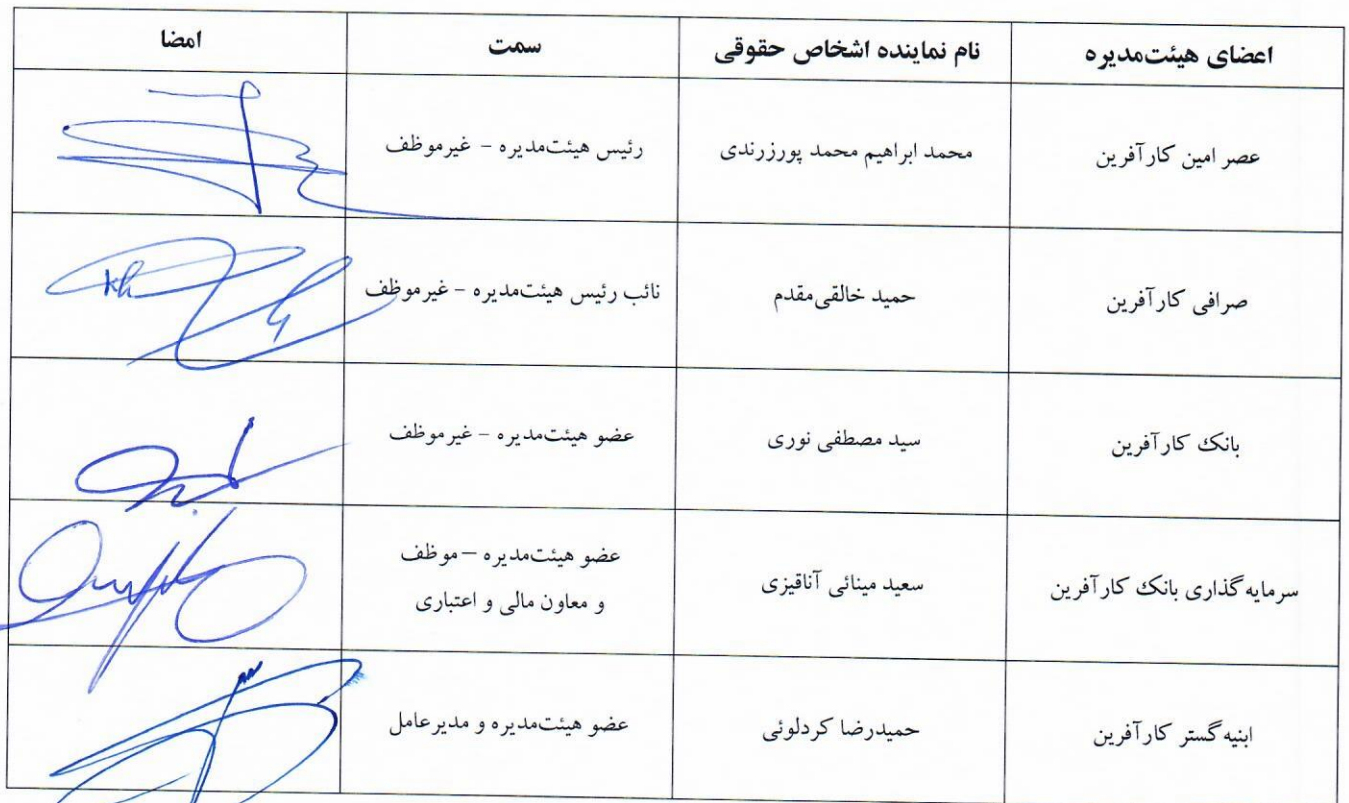 اعضای هیئت‌مدیره	نام نماینده اشخاص حقوقی	سمت	امضا
عصر امین کارآفرین	محمد ابراهیم محمد پورزرندی	رئیس هیئت‌مدیره - غیرموظف
صرافی کارآفرین	حمید خالقی‌مقدم	نائب رئیس هیئت‌مدیره - غیرموظف	Kh
بانک کارآفرین	سید مصطفی نوری	عضو هیئت‌مدیره - غیرموظف
سرمایه‌گذاری بانک کارآفرین	سعید مینائی آناقیزی	عضو هیئت‌مدیره – موظف
و معاون مالی و اعتباری
ابنیه‌گستر کارآفرین	حمیدرضا کردلوئی	عضو هیئت‌مدیره و مدیرعامل